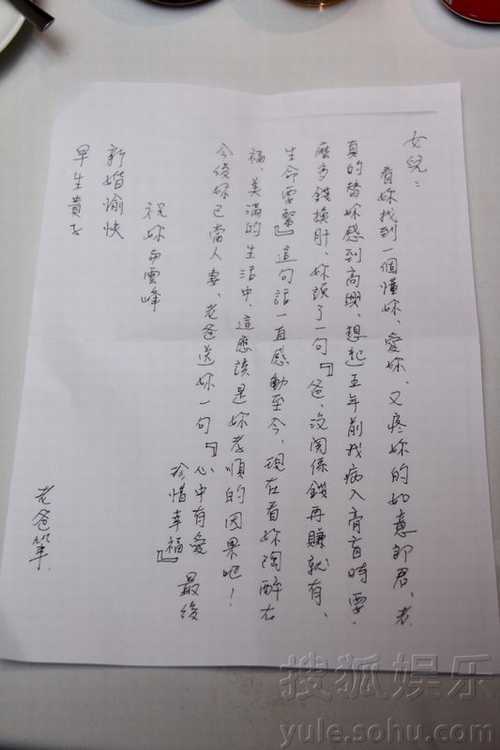 女兒：
看妳找到一個懂妳、愛妳、又疼妳的如意郎君、老
真的替妳感到高興、想起五年前我病入膏肓時要
麼多錢換肝、妳說了一句『爸、沒関係錢再賺就有、
生命要緊』這句話一直感動至今、現在看妳陶醉在
福、美滿的生活中、這應該是妳孝順的因果吧！
今後妳已當人妻、老爸送妳一句『心中有愛
珍惜幸福』 最後
祝妳和雲峰
新婚愉快
早生貴子
老爸筆
搜狐娱乐
yule.sohu.com